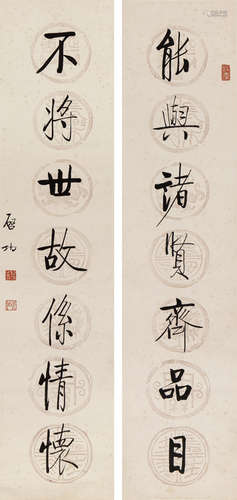 能與諸賢齊品目
不將世故係情懷
啟功